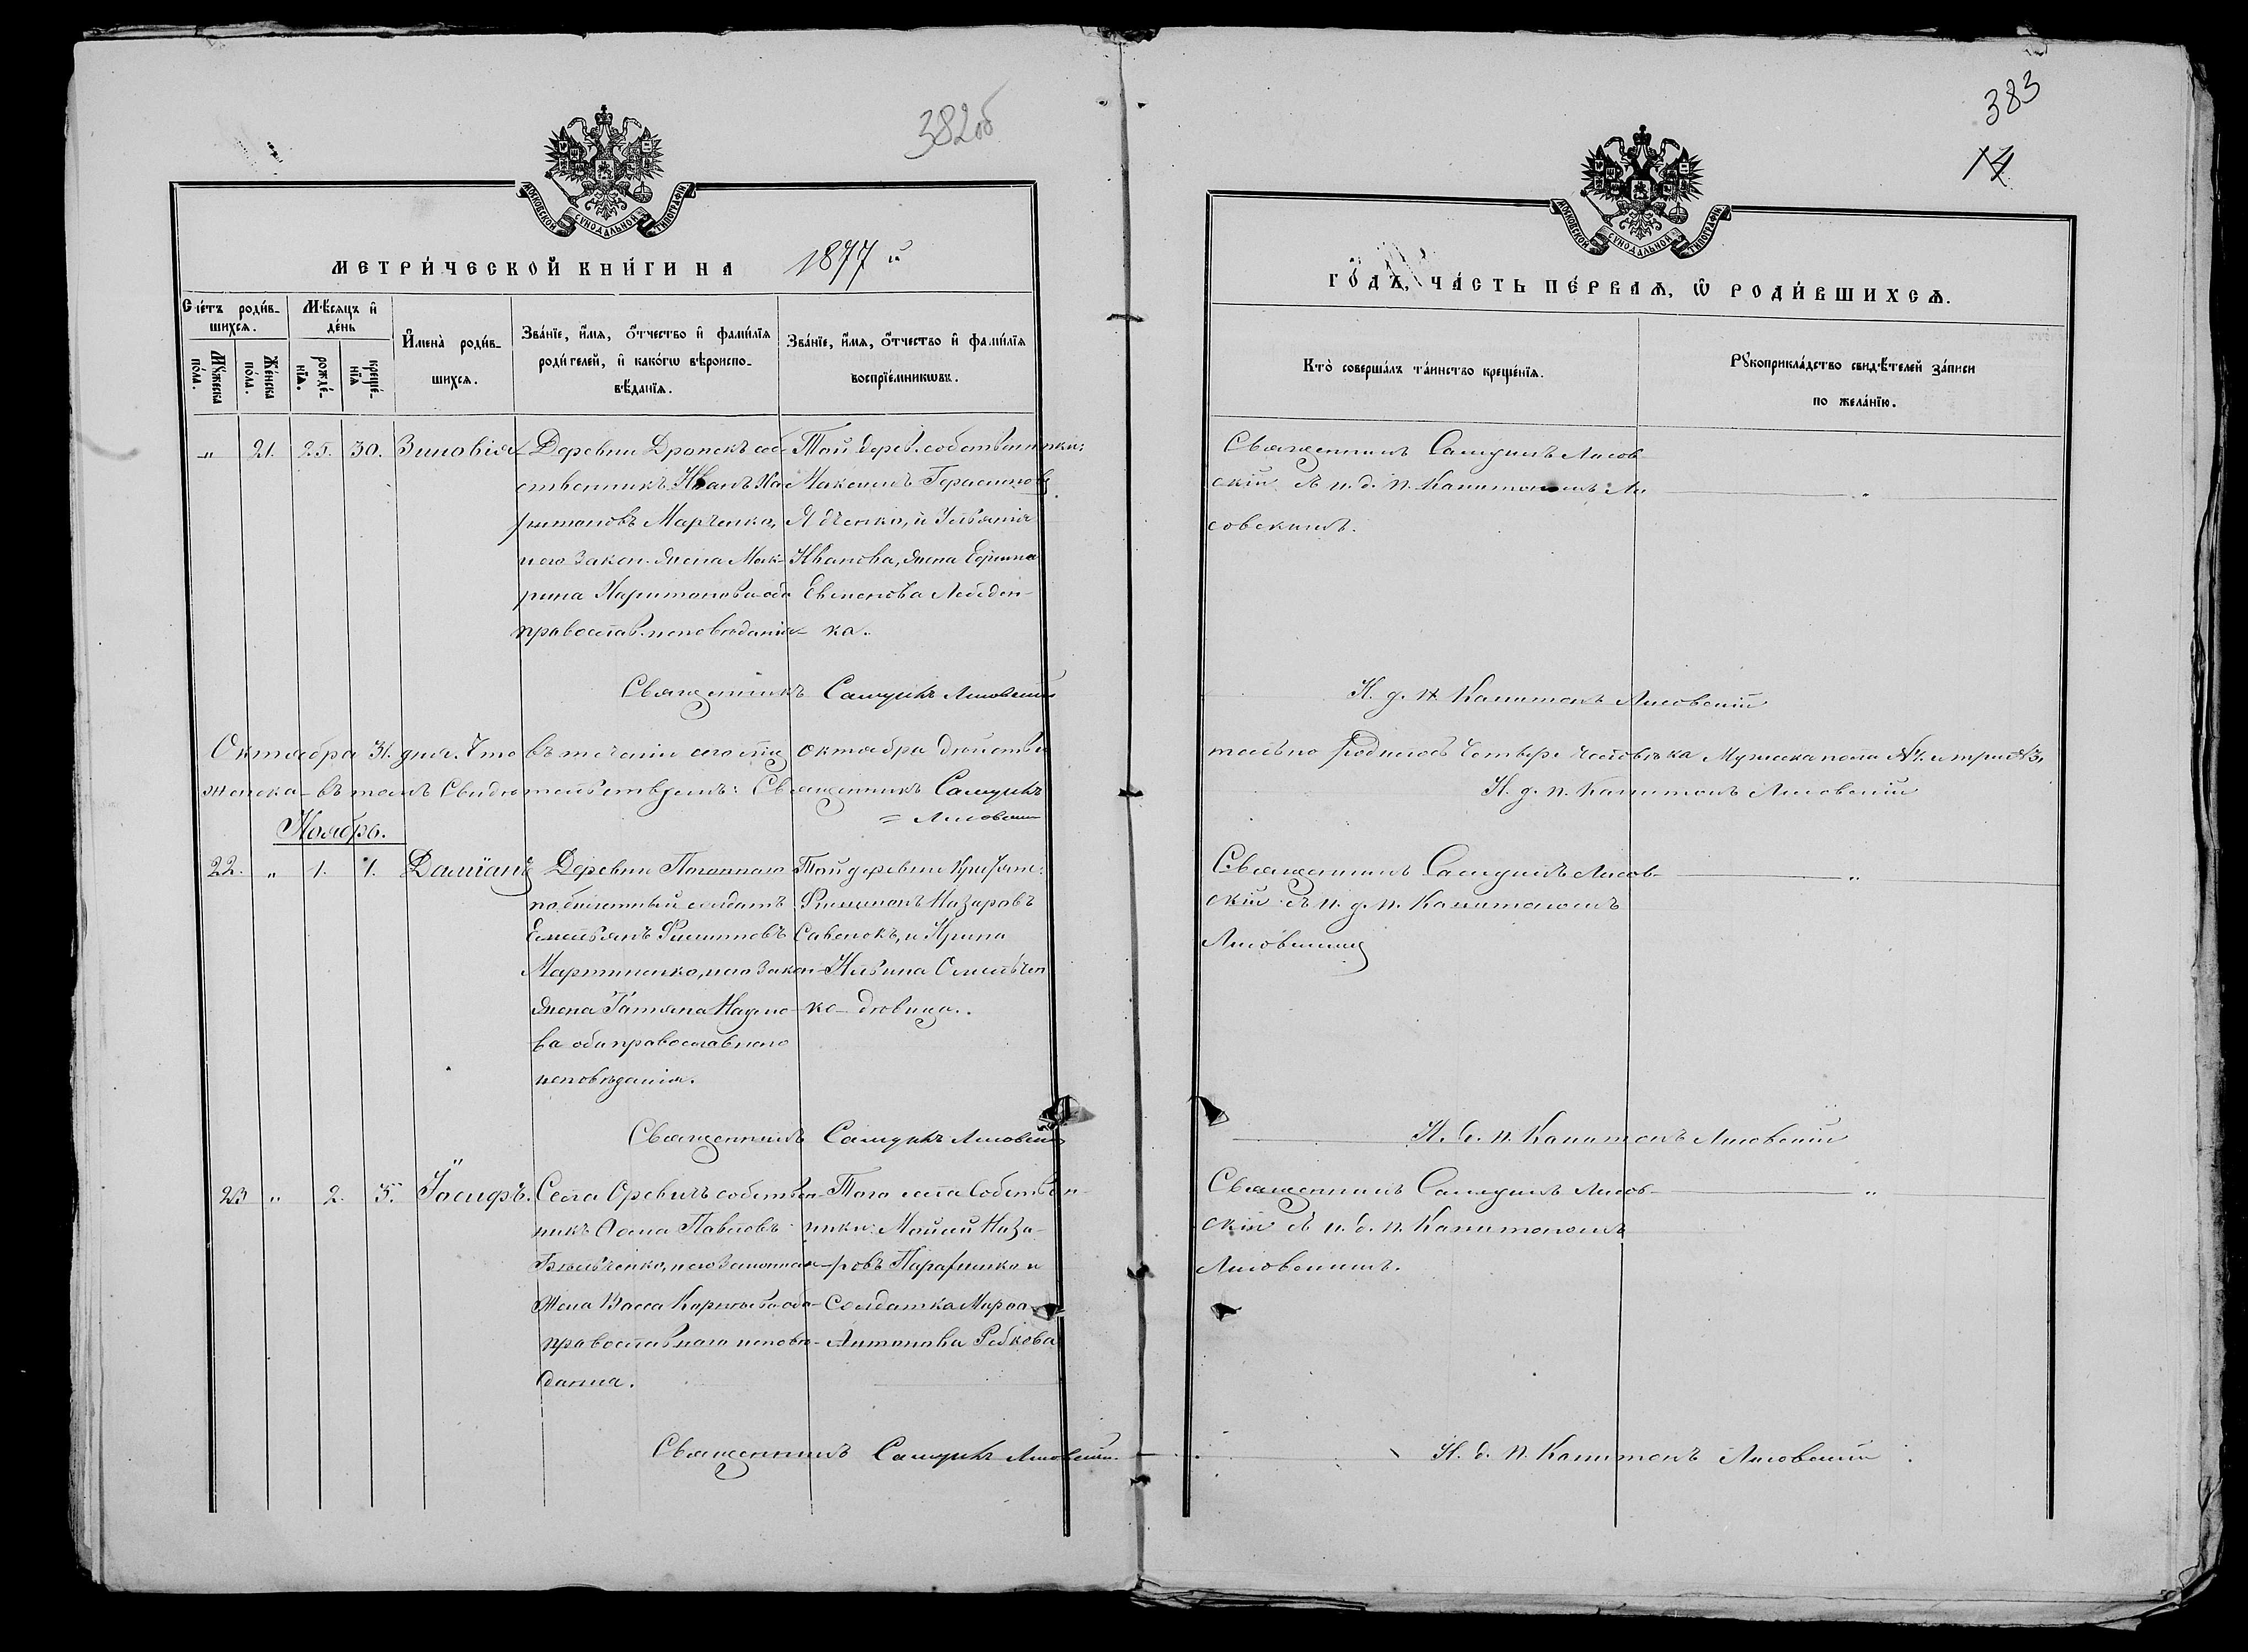 382об
МОСКОВСКОЙ СѴНОДАЛЬНОЙ ТИПОГРАФІИ
МЕТРИ́ЧЕСКОЙ КНИ́ГИ НА 1877 й
Сче́тъ роди́в-
шихся.
Мѣ́сяцъ и҆
де́нь
Мꙋ́жеска
по́ла.
Же́нска
по́ла.
рожде́-
нїѧ.
креще́-
нїѧ
И҆мена̀ роди́в-
шихсѧ.
Зва́нїе, и҆́мѧ, ѻ҆́тчество и҆ фами́лїѧ
роди́телей, и҆ како́гѡ вѣроиспо-
вѣ́данїѧ.
Зва́нїе, и҆́мѧ, ѻ҆́тчество и҆ фами́лїѧ
воспрїе́мникѡвъ.
" 21. 25. 30. Зиновія
Деревни Дронекъ соб-
ственникъ Иванъ Ха
ритоновъ Марченко,
и его закон. жена Мак-
рина Харитонова оба
православ. исповѣданія
Той дерев. собственники:
Максимъ Герасимовъ
Ядченко, и Ульянія
Иванова, жена
Евменова Лебеден-
ка.
Священникъ Самуилъ Лисовскій
Октября 31. дня. Что въ теченіи сего м̃ца октября дѣйстви
женска - въ томъ свидѣтельствуемъ: Священникъ Самуилъ
= Лисовскій
Ноябрь.
22. " 1. 1. Даміанъ
Деревни Поганнаго
по билетный солдатъ
Емельянъ Филиповъ
Мартиненко, и его закон
жена Татяна Наумо
ва оба православнаго
исповѣданія.
Той деревни Крестян:
Филимонъ Назаровъ
Савенокъ, и Ирина
Ильина Омельчен
ко - дѣвица..
Священникъ Самуилъ Лисовскій
23 " 2. 5. Іосифъ.
Села Оревичъ собствен-
никъ Ѳома Павловъ
Бѣльченко, и его законная
жена Васса Карпова оба
православнаго исповѣ-
данія.
Того села собствен-
ники: Моисей Наза-
ровъ и
солдатка Марѳа
Антонова Ребкова
Священникъ Самуилъ Лисовскій.
383
14
МОСКОВСКОЙ СѴНОДАЛЬНОЙ ТИПОГРАФІИ
ГО́ДЪ, ЧА́СТЬ ПЕ́РВАѦ, Ѡ҆ РОДИ́ВШИХСѦ.
Кто̀ соверша́лъ та́инство креще́нїѧ.
Рꙋкоприкла́дство свидѣ́телей за́писи
по жела́нїю.
Священникъ Самуилъ Лисов-
скій съ и. д. п. Капитономъ Ли
совскимъ.
"
И. д. п. Капитонъ Лисовскій
тельно родилось четверо человѣка мужска пола №1. и три №3.
И. д. п. Капитонъ Лисовскій
Священникъ Самуилъ Лисов-
скій съ и. д. п. Капитономъ
Лисовскимъ
"
И. д. п. Капитонъ Лисовскій
Священникъ Самуилъ Лисов-
скій съ и. д. п. Капитономъ
Лисовскимъ.
"
И. д. п. Капитонъ Лисовскій